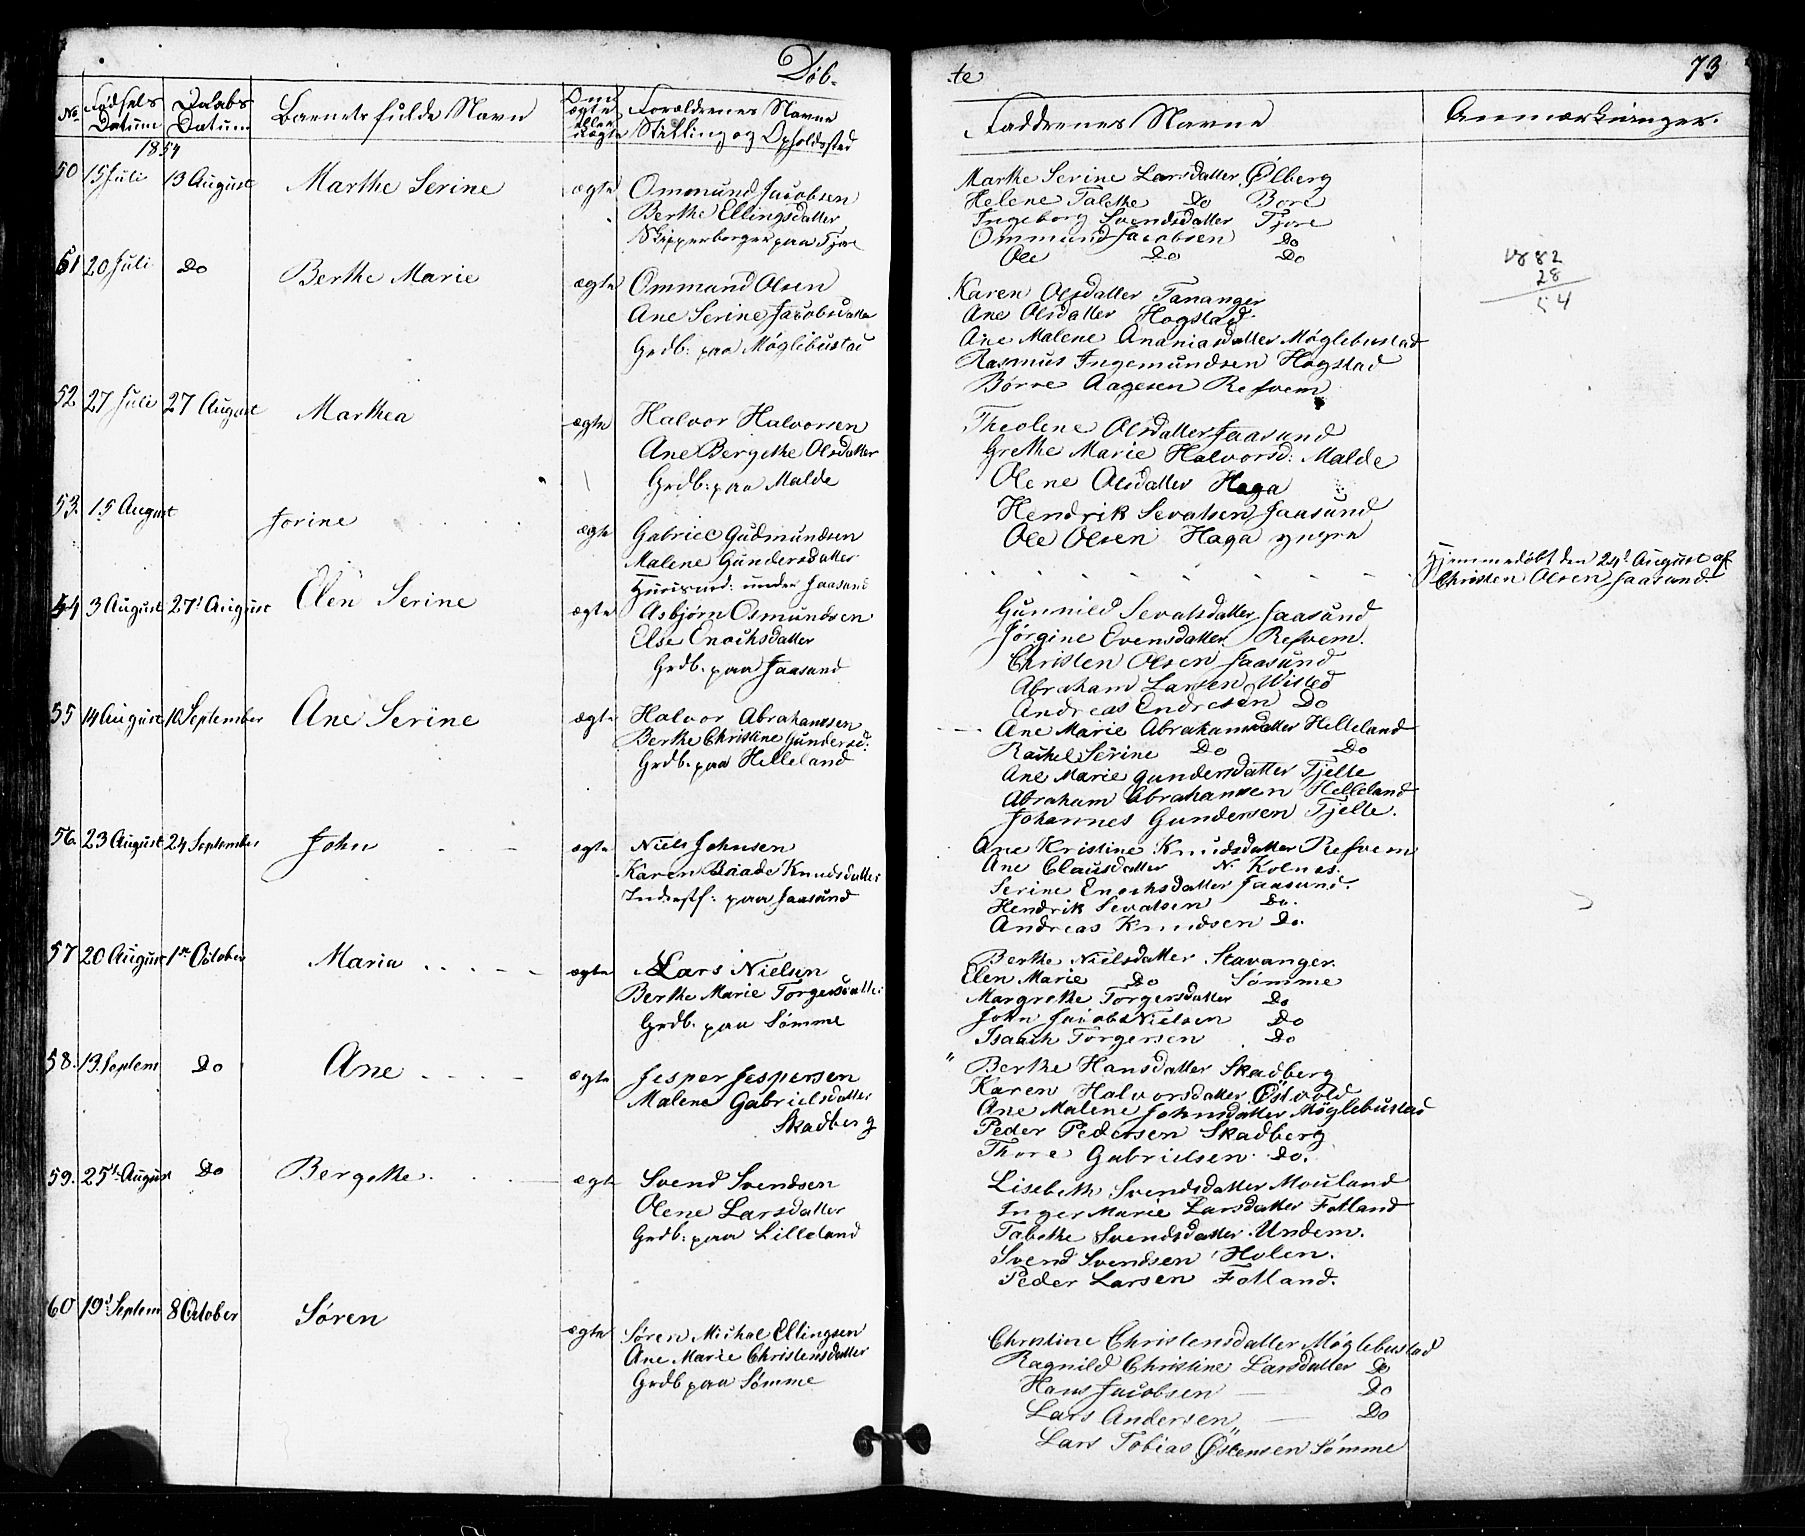 Døb-
te
73
No
Fødsels
Datum
Daabs
Datum
Barnets fulde Navn
Om
ægte
eller
uægte
Forældrenes Navne
Stilling og Opholdssted
Faddrenes Navne
Anmærkninger.
1854
50 15 Juli 13 August Marthe Serine ægte Ommund Jacobsen
Berthe Ellingsdatter
paa Tjore
Marthe Serine Larsdatter Ølberg
Helene Talethe Do Bore
Ingeborg Svendsdatter Tjore
Ommund Jacobsen Do
Ole Do Do
51 20 Juli Do Berthe Marie ægte Ommund Olsen
Ane Serine Jacobsdatter
Grdb: paa Møglebustad
Karen Olsdatter Tananger
Ane Olsdatter Hogstad.
Ane Malene Ananiasdatter Møglebustad
Rasmus Ingemundsen Hogstad
Børre Aagesen Refvem
1882
28
54
52 27 Juli 27 August Marthea ægte Halvor Halvorsen
Ane Bergethe Olsdatter
Grdb: paa Malde
Theolene Olsdatter Jaasund
Grethe Marie Halvorsd: Malde
Olene Olsdatter Haga
Hendrik Sevatsen Jaasund
Ole Olsen Haga yngre
53. 15 August Jorine ægte Gabriel Gudmundsen
Malene Gundersdatter
Huusmd: under Jaasund
Hjemmedøbt den 24d August af
Christen Olsen Jaasund
54 3 August 27d August Elen Serine ægte Asbjørn Osmundsen
Else Enochsdatter
Grdb. paa Jaasund
Gunnild Sevatsdatter Jaasund
Jørgine Evensdatter Refvem.
Christen Olsen Jaasund
Abraham Larsen Wisted
Andreas Endresen Do
55 14 August 10 September Ane Serine ægte Halvor Abrahamsen
Berthe Christine Gundersd:
Grdb. paa Helleland
Ane Marie Abrahamsdatter Helleland
Rachel Serine Do Do
Ane Marie Gundersdatter Tjelte
Abraham Abrahamsen Helleland
Johannes Gundersen Tjelte.
56. 23 August 24 September John ægte Niels Johnsen
Karen Baade Knudsdatter
Inderstf: paa Jaasund
Ane Kristine Knudsdatter Refvem
Ane Clausdatter N. Kolnes.
Serine Enochsdatter Jaasund.
Hendrik Sevatsen Do.
Andreas Knudsen Do.
57 20 August 1ste October Maria ægte Lars Nielsen
Berthe Marie Torgersdatter
Grdb. paa Sömme
Berthe Nielsdatter Stavanger.
Elen Marie Do Sömme
Margrethe Torgersdatter Do
John Jacobs Nielsen Do
Isaach Torgersen Do
58. 13 Septem Do Ane ægte Jesper Jespersen
Malene Gabrielsdatter
Skadberg
" Berthe Hansdatter Skadberg
Karen Halvorsdatter Østvold
Ane Malene Johnsdatter Møglebustad
Peder Pedersen Skadberg
Thore Gabrielsen Do.
59. 25d August Do Bergethe. ægte Svend Svendsen
Olene Larsdatter
Grdb: paa Lilleland
Lisebeth Svendsdatter Mouland
Inger Marie Larsdatter Fotland
Tabethe Svendsdatter Undem.
Svend Svendsen Holen.
Peder Larsen Fotland.
60 19d Septem 8 October Søren ægte Søren Michal Ellingsen
Ane Marie Christensdatter
Grdb paa Sömme
Christine Christensdatter Møglebustad
Ragnild Christine Larsdatter Do
Hans Jacobsen Do
Lars Andersen Do
Lars Tobias Østensen Sömme